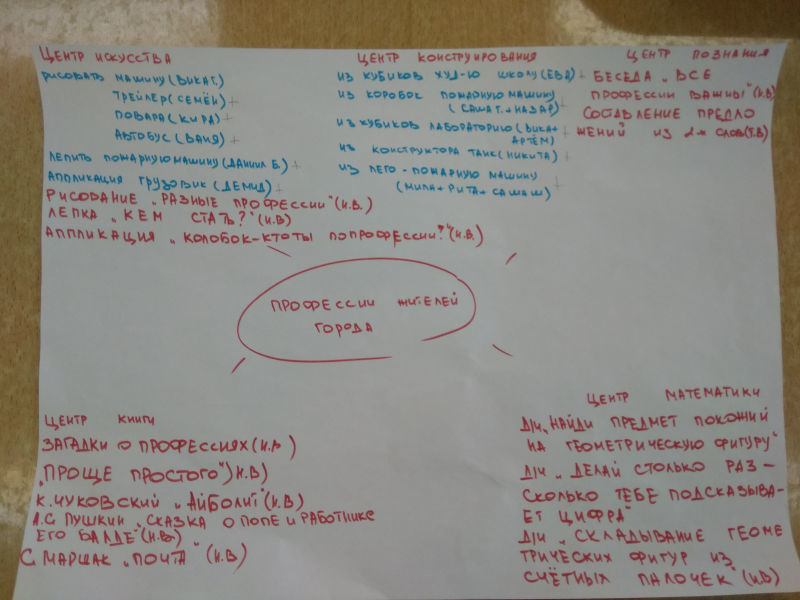 ЦЕНТР ИСКУССТВА
РИСОВАТЬ МАШИНУ (ВИКА Г.)
ТРЕЙЛЕР (СЕМЁН)
ПОВАРА (КИРА)
АВТОБУС (ВАНЯ)
ЛЕПИТЬ ПОЖАРНУЮ МАШИНУ (ДАНИИЛ Б.)
АППЛИКАЦИЯ ГРУЗОВИК (ДЕМИД)
РИСОВАНИЕ „РАЗНЫЕ ПРОФЕССИИ" (И.В.)
ЛЕПКА „КЕМ СТАТЬ?" (И.В)
АППЛИКАЦИЯ „КОЛОБОК-КТО ТЫ ПО ПРОФЕССИИ?" (И.В.)
ЦЕНТР КОНСТРУИРОВАНИЯ
ИЗ КУБИКОВ ХУД-Ю ШКОЛУ (ЕВА)
ИЗ КОРОБОК ПОЖАРНУЮ МАШИНУ
(САША Г. + НАЗАР)
ИЗ КУБИКОВ ЛАБОРАТОРИЮ (ВИКА +
АРТЁМ)
ИЗ КОНСТРУКТОРА ТАНК (НИКИТА)
ИЗ ЛЕГО - ПОЖАРНУЮ МАШИНУ
(МИЛА + РИТА + САША Ш)
ЦЕНТР ПОЗНАНИЯ
БЕСЕДА „ВСЕ
ПРОФЕССИИ ВАЖНЫ" (И.В)
СОСТАВЛЕНИЕ ПРЕДЛО
ЖЕНИЙ ИЗ 2-х СЛОВ (Т.В)
ПРОФЕССИИ ЖИТЕЛЕЙ
ГОРОДА
ЦЕНТР КНИГИ
ЗАГАДКИ О ПРОФЕССИЯХ (И.В)
„ПРОЩЕ ПРОСТОГО") И.В)
К. ЧУКОВСКИЙ „АЙБОЛИТ" (И.В)
А.С ПУШКИН „СКАЗКА О ПОПЕ И РАБОТНИКЕ
ЕГО БАЛДЕ" (И.В.)
С МАРШАК „ПОЧТА" (И.В)
ЦЕНТР МАТЕМАТИКИ
Д/И „НАЙДИ ПРЕДМЕТ ПОХОЖИЙ
НА ГЕОМЕТРИЧЕСКУЮ ФИГУРУ"
Д/И „ДЕЛАЙ СТОЛЬКО РАЗ –
СКОЛЬКО ТЕБЕ ПОДСКАЗЫВА-
ЕТ ЦИФРА"
Д/И „СКЛАДЫВАНИЕ ГЕОМЕ
ТРИЧЕСКИХ ФИГУР ИЗ
СЧЁТНЫХ ПАЛОЧЕК" (И.В)